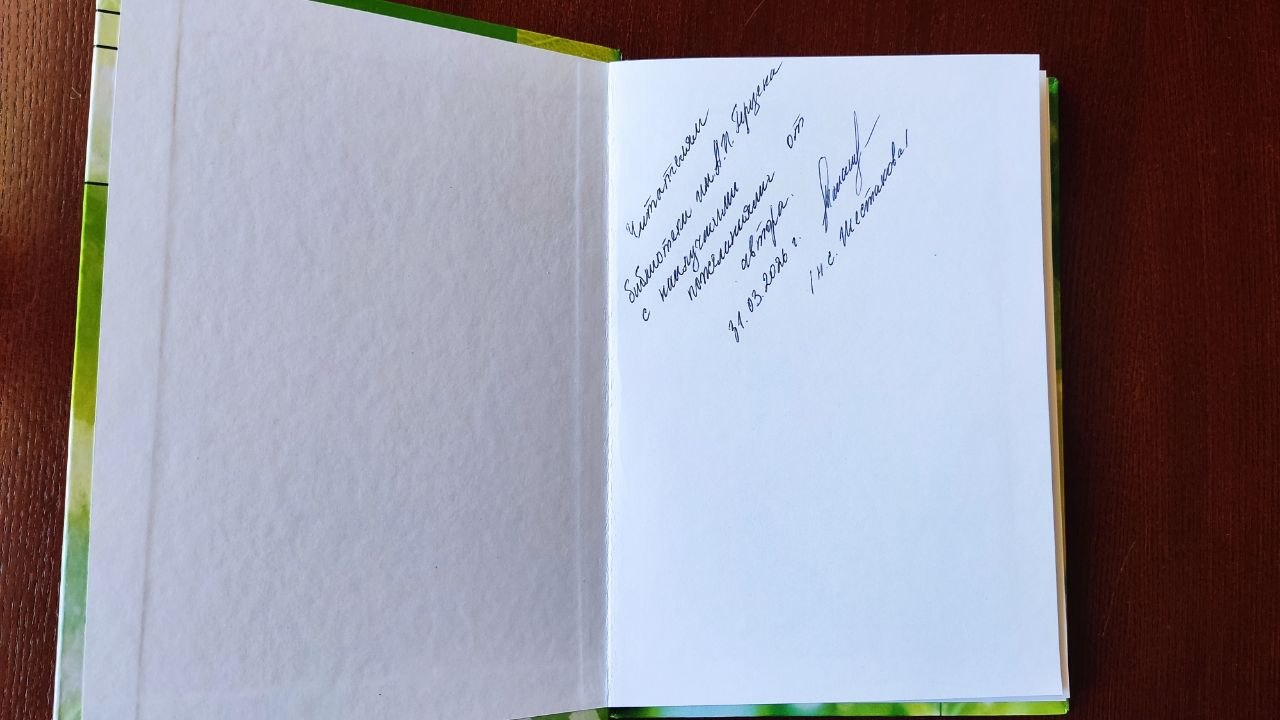 Читателям
библиотеки им. А. И. Герцена
с наилучшими
пожеланиями от
автора.
31.03.2026 г.
/Н. С. Шестакова/